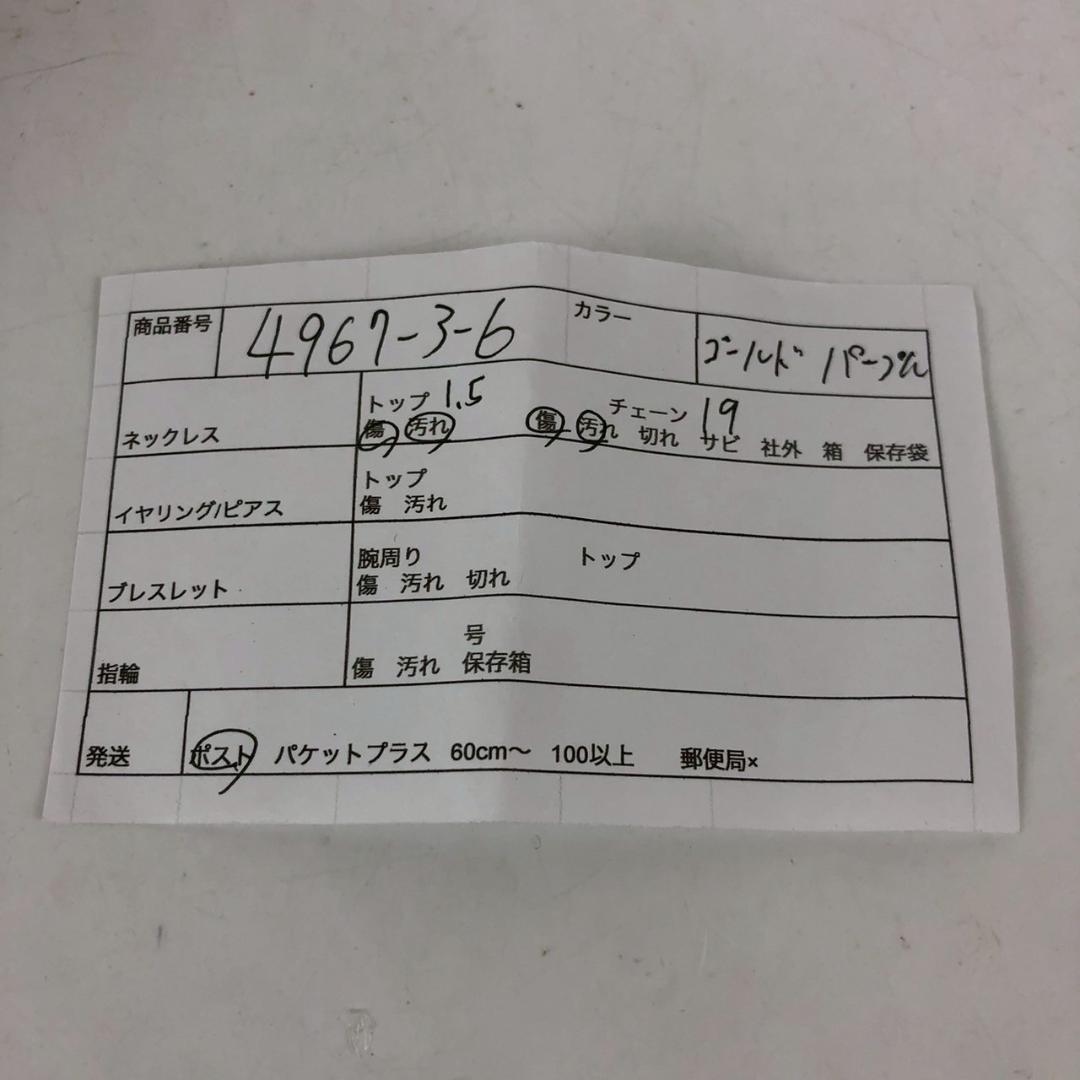 商品番号 4967-3-6 カラー ゴールド パープル
ネックレス トップ 1.5 チェーン 19
傷 汚れ 傷 汚れ 切れ サビ 社外 箱 保存袋
イヤリング/ピアス トップ
傷 汚れ
ブレスレット 腕周り トップ
傷 汚れ 切れ
指輪 号
傷 汚れ 保存箱
発送 ポスト パケットプラス 60cm〜 100以上 郵便局×